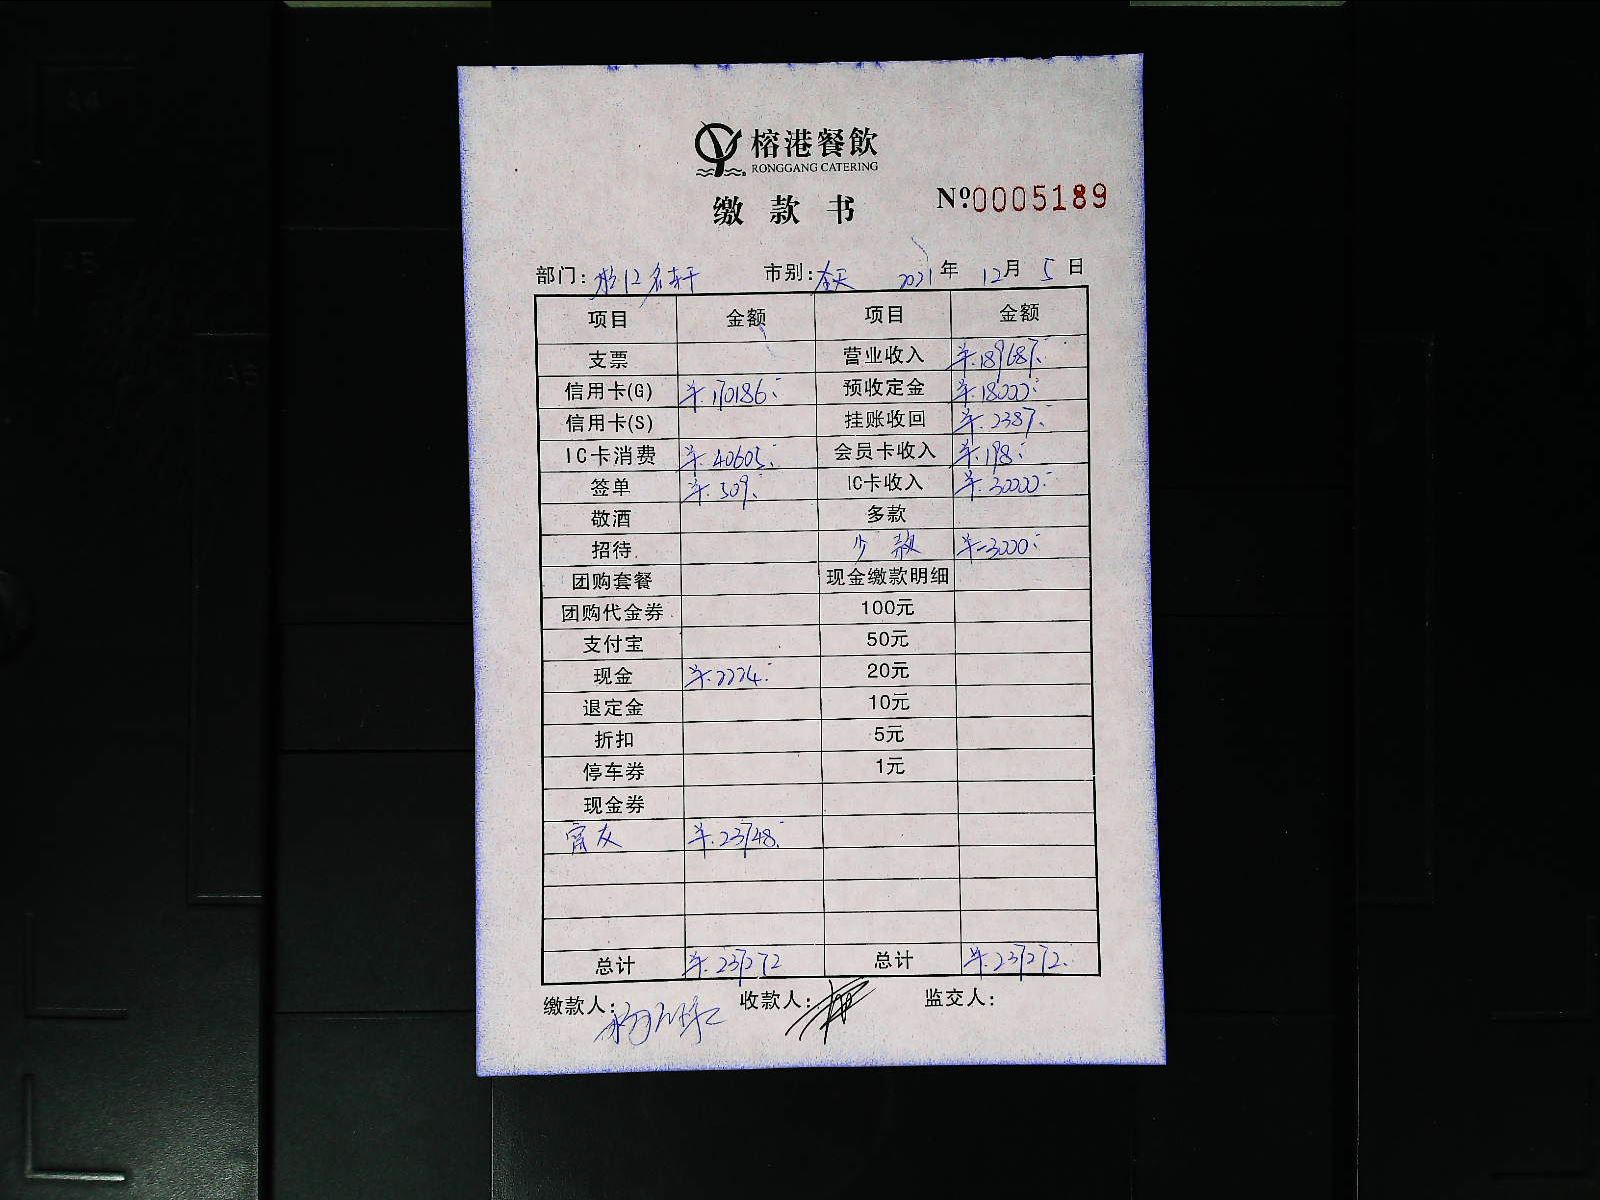 榕港餐飲
RONGGANG CATERING
缴款书
Nº:0005189
部门: 名轩 市别:全天 2021年12月5日
项目 金额 项目 金额
支票 营业收入 ¥:189687.-
信用卡(G) ¥:170186.- 预收定金 ¥:18000.-
信用卡(S) 挂账收回 ¥:2387.-
IC卡消费 ¥:40605.- 会员卡收入 ¥:198.-
签单 ¥:509.- IC卡收入 ¥:30000.-
敬酒 多款
招待 少款 ¥-3000.-
团购套餐 现金缴款明细
团购代金券 100元
支付宝 50元
现金 ¥:2224.- 20元
退定金 10元
折扣 5元
停车券 1元
现金券
¥:23748.-
总计 ¥:237272 总计 ¥:237272.-
缴款人: 收款人: 监交人: